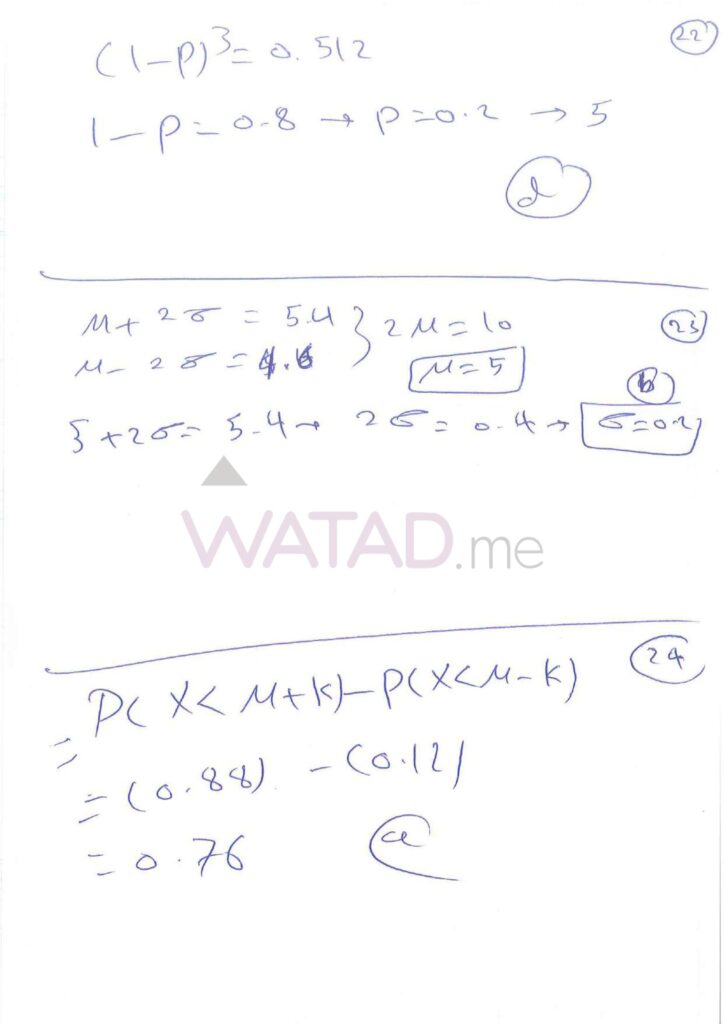 22
(1-p)³ = 0.512
1-p = 0.8 → p = 0.2 → 5
d
23
μ + 2σ = 5.4 } 2μ = 10
μ - 2σ = 4.6 μ = 5
b
5 + 2σ = 5.4 → 2σ = 0.4 → σ = 0.2
WATAD.me
24
= P(X < μ+k) - P(X < μ-k)
= (0.88) - (0.12)
= 0.76 a